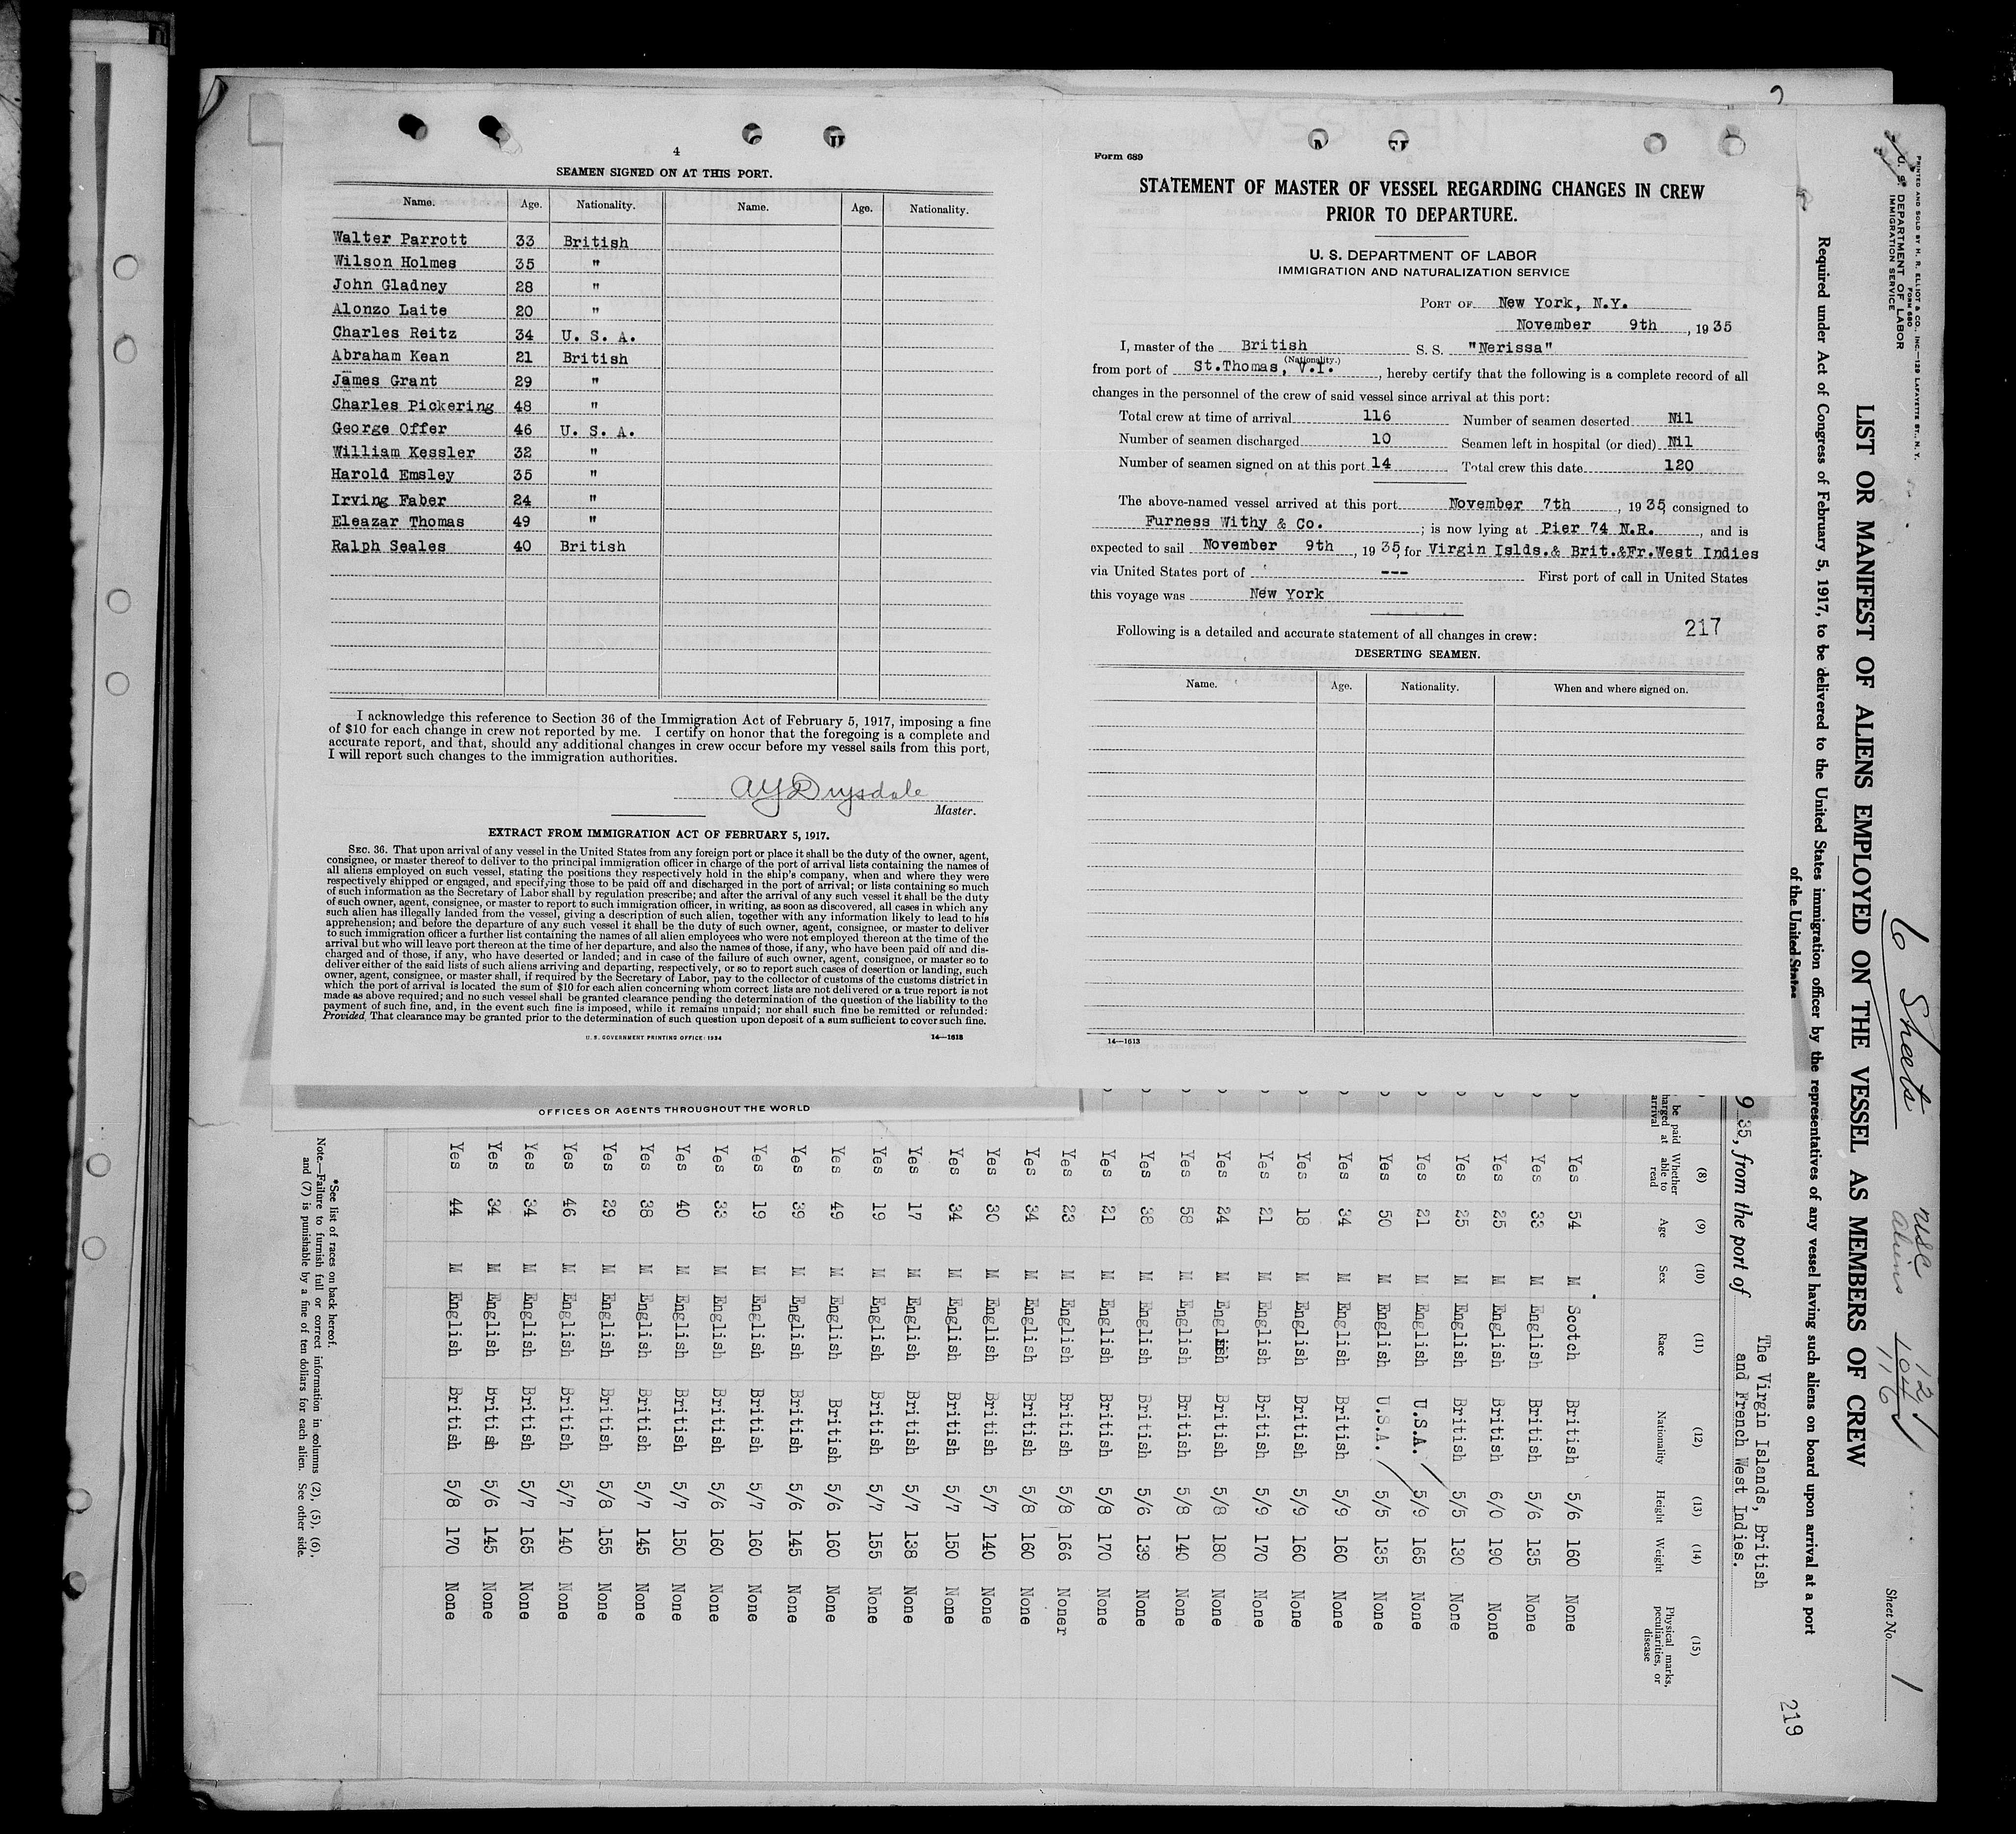 4
SEAMEN SIGNED ON AT THIS PORT.
Name. Age. Nationality. Name. Age. Nationality.
Walter Parrott 33 British
Wilson Holmes 35 "
John Gladney 28 "
Alonzo Laite 20 "
Charles Reitz 34 U. S. A.
Abraham Kean 21 British
James Grant 29 "
Charles Pickering 48 "
George Offer 46 U. S. A.
William Kessler 32 "
Harold Emsley 35 "
Irving Faber 24 "
Eleazar Thomas 49 "
Ralph Seales 40 British
I acknowledge this reference to Section 36 of the Immigration Act of February 5, 1917, imposing a fine
of $10 for each change in crew not reported by me. I certify on honor that the foregoing is a complete and
accurate report, and that, should any additional changes in crew occur before my vessel sails from this port,
I will report such changes to the immigration authorities.
AYDrysdale
Master.
EXTRACT FROM IMMIGRATION ACT OF FEBRUARY 5, 1917.
SEC. 36. That upon arrival of any vessel in the United States from any foreign port or place it shall be the duty of the owner, agent,
consignee, or master thereof to deliver to the principal immigration officer in charge of the port of arrival lists containing the names of
all aliens employed on such vessel, stating the positions they respectively hold in the ship's company, when and where they were
respectively shipped or engaged, and specifying those to be paid off and discharged in the port of arrival; or lists containing so much
of such information as the Secretary of Labor shall by regulation prescribe; and after the arrival of any such vessel it shall be the duty
of such owner, agent, consignee, or master to report to such immigration officer, in writing, as soon as discovered, all cases in which any
such alien has illegally landed from the vessel, giving a description of such alien, together with any information likely to lead to his
apprehension; and before the departure of any such vessel it shall be the duty of such owner, agent, consignee, or master to deliver
to such immigration officer a further list containing the names of all alien employees who were not employed thereon at the time of the
arrival but who will leave port thereon at the time of her departure, and also the names of those, if any, who have been paid off and dis-
charged and of those, if any, who have deserted or landed; and in case of the failure of such owner, agent, consignee, or master so to
deliver either of the said lists of such aliens arriving and departing, respectively, or so to report such cases of desertion or landing, such
owner, agent, consignee, or master shall, if required by the Secretary of Labor, pay to the collector of customs of the customs district in
which the port of arrival is located the sum of $10 for each alien concerning whom correct lists are not delivered or a true report is not
made as above required; and no such vessel shall be granted clearance pending the determination of the question of the liability to the
payment of such fine, and, in the event such fine is imposed, while it remains unpaid; nor shall such fine be remitted or refunded:
Provided, That clearance may be granted prior to the determination of such question upon deposit of a sum sufficient to cover such fine.
U. S. GOVERNMENT PRINTING OFFICE: 1934 14—1613
OFFICES OR AGENTS THROUGHOUT THE WORLD
Form 689
STATEMENT OF MASTER OF VESSEL REGARDING CHANGES IN CREW
PRIOR TO DEPARTURE.
U. S. DEPARTMENT OF LABOR
IMMIGRATION AND NATURALIZATION SERVICE
PORT OF New York, N.Y.
November 9th, 1935
I, master of the British S. S. "Nerissa"
(Nationality.)
from port of St.Thomas, V.I., hereby certify that the following is a complete record of all
changes in the personnel of the crew of said vessel since arrival at this port:
Total crew at time of arrival 116 Number of seamen deserted Nil
Number of seamen discharged 10 Seamen left in hospital (or died) Nil
Number of seamen signed on at this port 14 Total crew this date 120
The above-named vessel arrived at this port November 7th, 1935, consigned to
Furness Withy & Co.; is now lying at Pier 74 N.R., and is
expected to sail November 9th, 1935, for Virgin Islds.& Brit.&Fr.West Indies
via United States port of --- First port of call in United States
this voyage was New York
217
Following is a detailed and accurate statement of all changes in crew:
DESERTING SEAMEN.
Name. Age. Nationality. When and where signed on.
14—1613
PRINTED AND SOLD BY H. R. ELLIOT & CO., INC.—129 LAFAYETTE ST., N. Y.
FORM 680
U. S. DEPARTMENT OF LABOR
IMMIGRATION SERVICE
6 Sheets
USC 12
Aliens 104
116
Sheet No. 1
LIST OR MANIFEST OF ALIENS EMPLOYED ON THE VESSEL AS MEMBERS OF CREW
Required under Act of Congress of February 5, 1917, to be delivered to the United States immigration officer by the representatives of any vessel having such aliens on board upon arrival at a port
of the United States
219
The Virgin Islands, British
935, from the port of and French West Indies.
(8) (9) (10) (11) (12) (13) (14) (15)
be paid
arged at
arrival
Whether able to read Age Sex Race Nationality Height Weight Physical marks, peculiarities, or disease
Yes 54 M Scotch British 5/6 160 None
Yes 33 M English British 5/6 135 None
Yes 25 M English British 6/0 190 None
Yes 25 M English British 5/5 130 None
Yes 21 M English U.S.A. 5/9 165 None
Yes 50 M English U.S.A. 5/5 135 None
Yes 34 M English British 5/9 160 None
Yes 18 M English British 5/9 160 None
Yes 21 M English British 5/9 170 None
Yes 24 M English British 5/8 180 None
Yes 58 M English British 5/8 140 None
Yes 38 M English British 5/6 139 None
Yes 21 M English British 5/8 170 None
Yes 23 M English British 5/8 166 Noner
Yes 34 M English British 5/8 160 None
Yes 30 M English British 5/7 140 None
Yes 34 M English British 5/7 150 None
Yes 17 M English British 5/7 138 None
Yes 19 M English British 5/7 155 None
Yes 49 M English British 5/6 160 None
Yes 39 M English British 5/6 145 None
Yes 19 M English British 5/7 160 None
Yes 33 M English British 5/6 160 None
Yes 40 M English British 5/7 150 None
Yes 38 M English British 5/7 145 None
Yes 29 M English British 5/8 155 None
Yes 46 M English British 5/7 140 None
Yes 34 M English British 5/7 165 None
Yes 34 M English British 5/6 145 None
Yes 44 M English British 5/8 170 None
*See list of races on back hereof.
Note.—Failure to furnish full or correct information in columns (2), (5), (6),
and (7) is punishable by a fine of ten dollars for each alien. See other side.